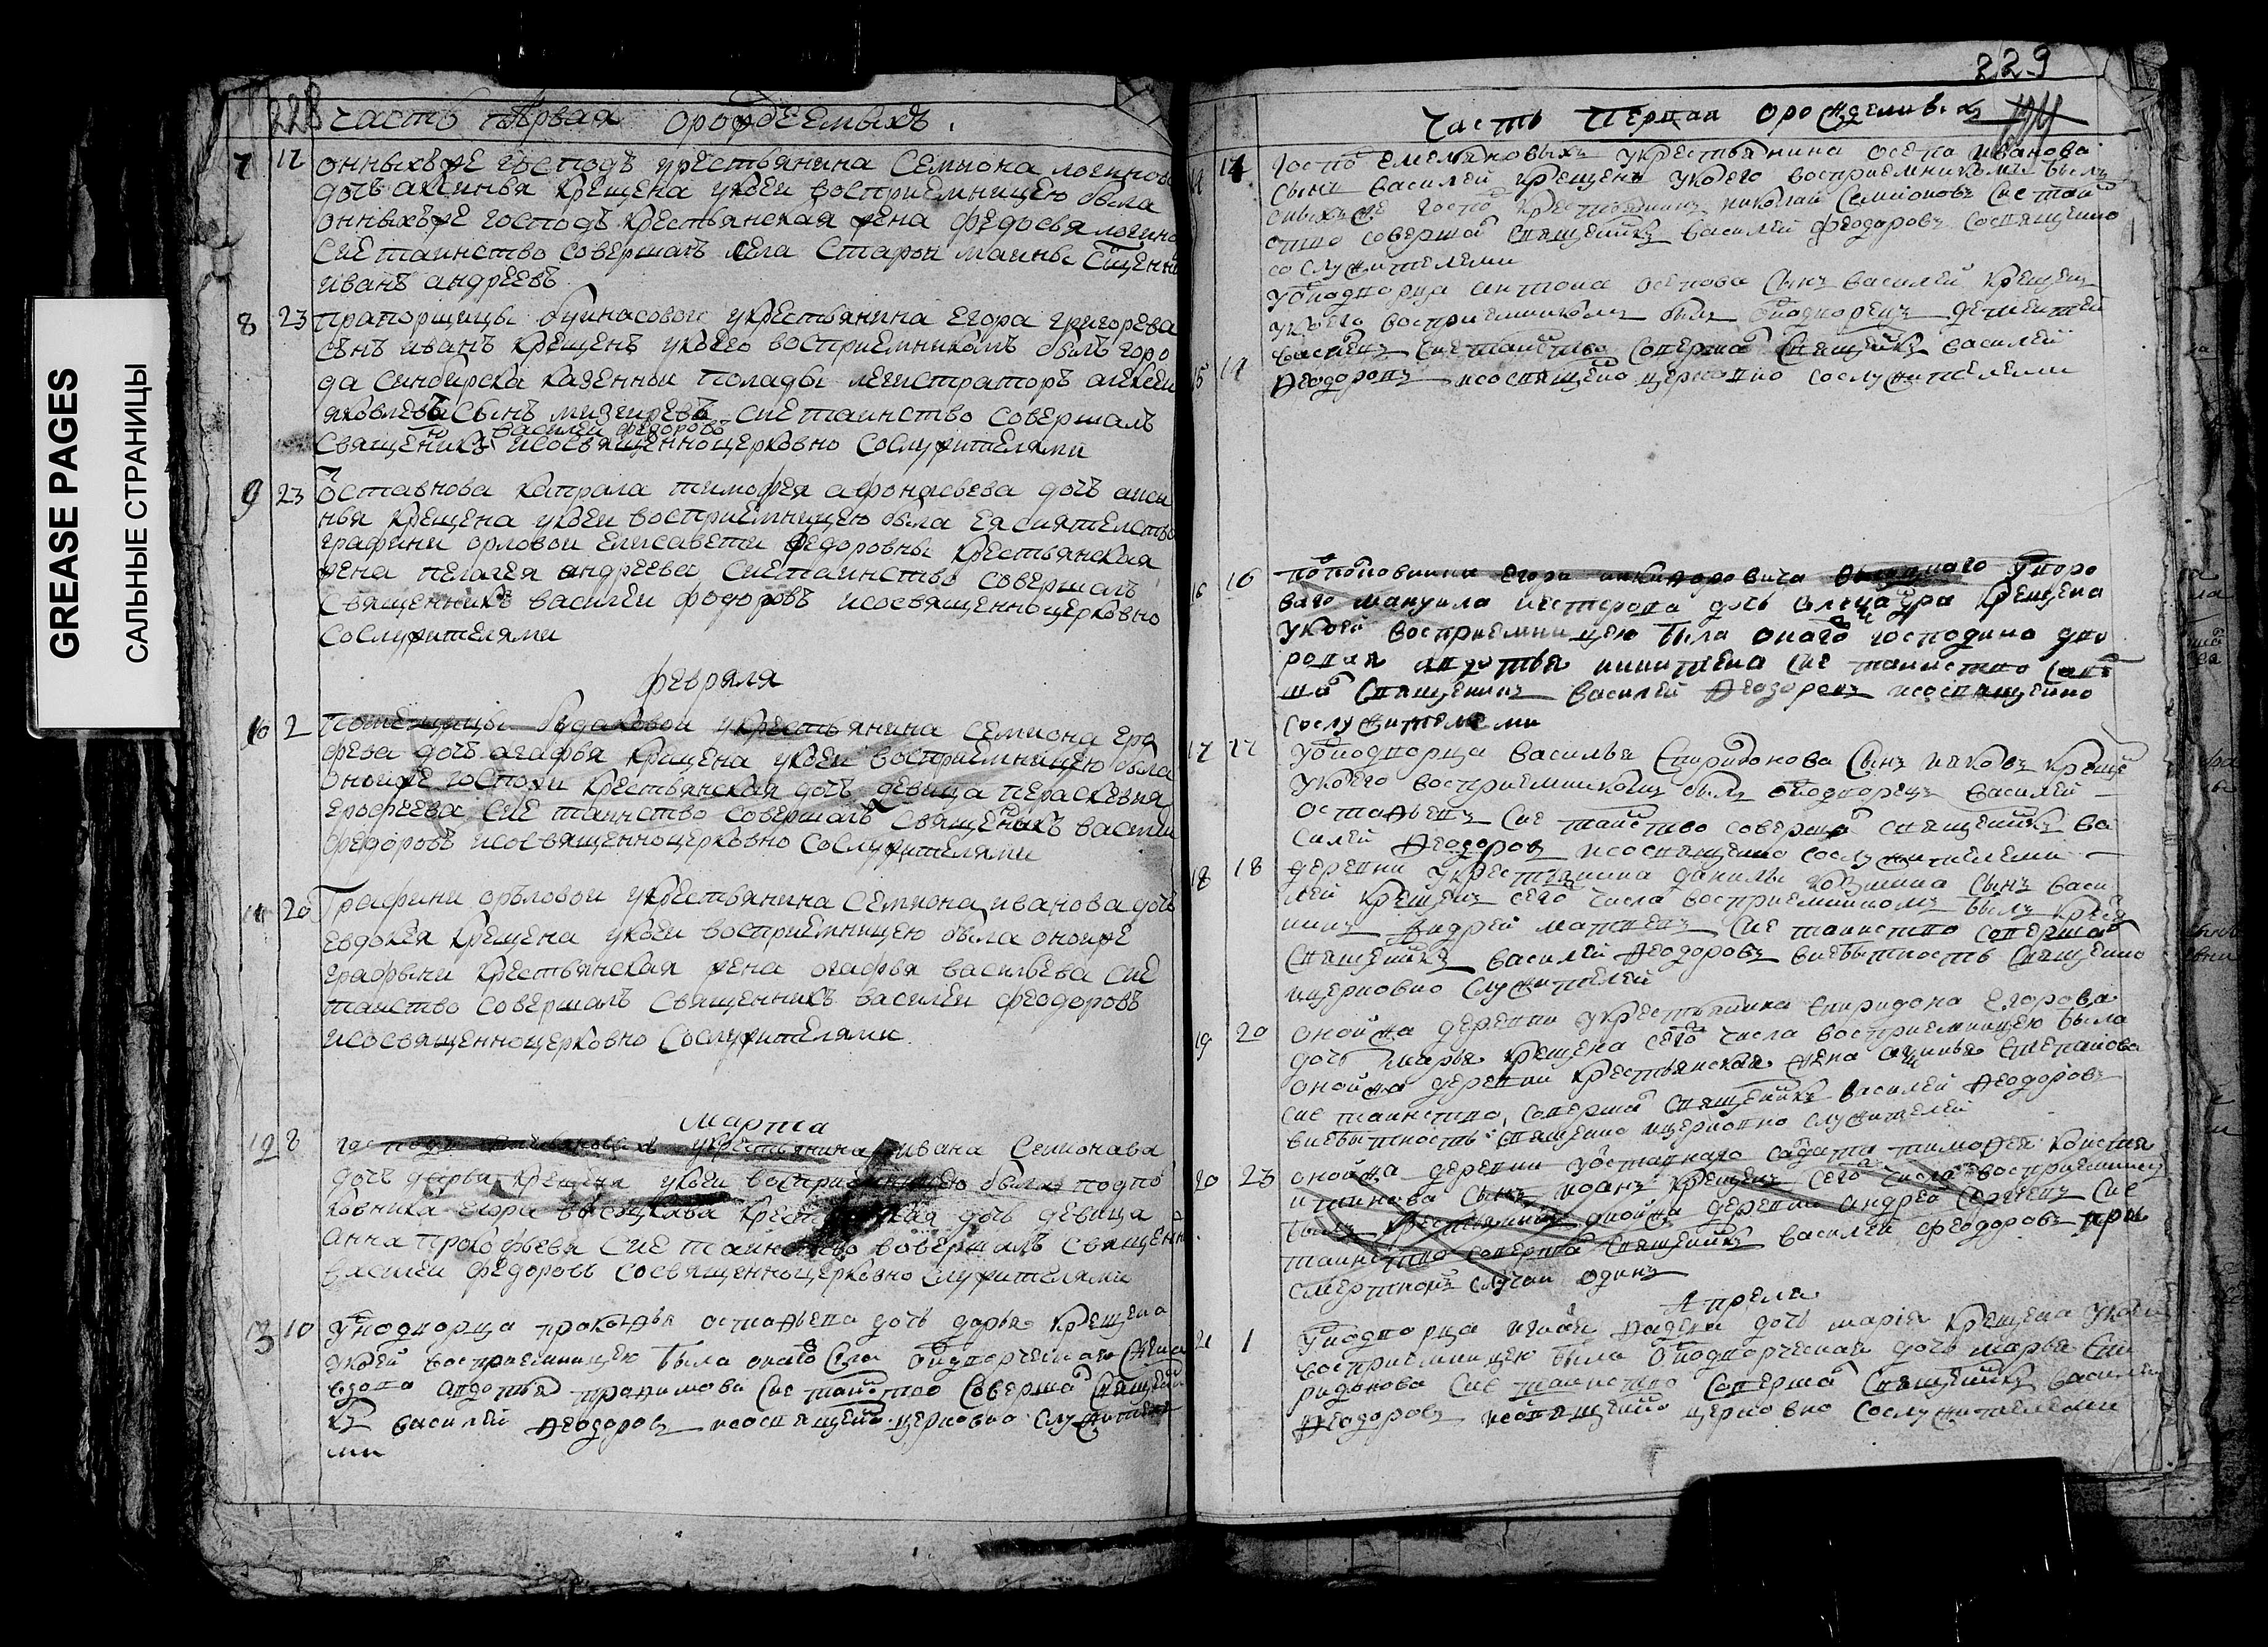 GREASE PAGES
САЛЬНЫЕ СТРАНИЦЫ
228 часть Первая орождеемыхъ.
7 12 онныхъже господъ укрестьянина Семиона логинова
дочь аксинья крещена укоеи восприемницею была
онныхъже господъ крестьянская жена федосья логинова
Сие таинство совершалъ села Старои маины Сщенникъ
иванъ андреевъ
8 23 Прапорщицы буинасовои укрестьянина Егора григорева
сынъ иванъ крещенъ укоего восприемникомъ былъ горо
да Синбирска казеннои полады регистраторъ алексеи
яковлевъ Сынъ мизгиревъ сие таинство совершалъ
василеи федоровъ
Священикъ исосвященноцерковно Сослужителями
9 23 Оставнова капрала тимофея афонасьева дочь акси
нья крещена укоеи восприемницею была Ея сиятелство
графини орловои Елисавети федоровны крестьянская
жена пелагея андреева Сие таинство совершалъ
Священникъ василеи федоровъ исосвященноцерковно
Сослужителями
февраля
10 2 Помещицы будаковои укрестьянина Семиона еро
феева дочь агафья крщена укоеи восприемницею была
оноиже госпожи крестьянская дочь девица пераскевия
Ерофеева сие таинство совершалъ Священикъ васили
федоровъ исосвященноцерковно Сослужителями
11 20 Графини орьловои укрестьянина Семиона иванова дочь
Евдокея крещена укоеи восприемницею была оноиже
графыни крестьянская жена агафья васильева Сие
таиство совершалъ Священникъ василеи феодоровъ
исосвященноцерковно Сослужителями
марта
12 8 укрестьянина ивана Семионава
дочь дарья крещена укоеи восприемницею была подпо
ковника егора дочь девица
Анна прокофьева Сие таинство совершалъ Священ
василеи федоровъ сосвященноцерковно Служителями
13 10 Уноднорца прокофья астафьева дочь дарья крещена
укоей восприемницею была онаго Села однорческая жена
авдотья Сие таиство Соверша Священи
къ василей феодоровъ исосвященно церковно Служителя
ми
229
Часть Первая орожденныхъ
14 госпо емельяновыхъ укрестьянина осепа иванова
сынъ василей крещенъ укоего восприемникомъ былъ
оныхъже госпо крестьянинъ николай Семионовъ Сие таин
ство совершал Священникъ василей феодоровъ сосвященно
сослужителеми
15 17 уоноднорца антона осепова Сынъ василей крещенъ
укоего восприемникомъ былъ оноднорецъ дементей
Сие таинство Совершал Священникъ василей
феодоровъ исосвященно церковно сослужителеми
16 16
ваго мануила нестерова дочь александра крещена
укоей восприемницею была онаго господина дво
ровая авдотья никитина Сие таинство Сове
ша Священикъ василей феодоровъ исосвященно
сослужителеми
17 17 уоноднорца василья Спиридонова Сынъ иаковъ креще
укоего восприемникомъ былъ оноднорецъ василей
остафьевъ Сие таиство соверша священникъ ва
силей феодоровъ исосвященно сослужителеми
18 18 деревни укрестьянина данилы козмина Сынъ васи
лей крещенъ сего числа восприемникомъ былъ крест
нинъ Андрей матвеевъ Сие таинство соверша
Священникъ василей феодоровъ внебытность священно
ицерковно служителей
19 20 оной жа деревни укрестьянина спиридона егорова
дочь марья крещена сего числа восприемницею была
оной жа деревни крестьянская жена аксинья степанова
сие таинство соверша Священникъ василей феодоровъ
внебытность священно ицерковно служителей
20 23 оной жа деревни уоставнаго салдата тимофея констан
итинова Сынъ иоанъ крещенъ сего числа восприемнику
былъ крестьянинъ оной жа деревни андрей Сергеевъ Сие
таинство соверша Священникъ василей феодоровъ при
смертномъ случаи одинъ
Апреля
21 1 Уоноднорца дочь марiя крещена укоей
восприемницею была оноднорческая дочь марья Спи
ридонова Сие таинство Соверша Священникъ василей
феодоровъ исосвященно церковно сослужителеми